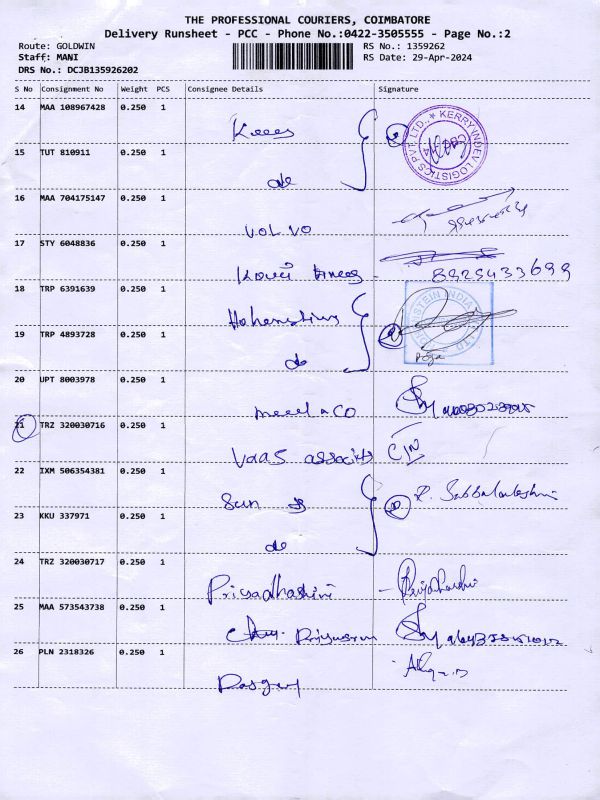 THE PROFESSIONAL COURIERS, COIMBATORE
Delivery Runsheet - PCC - Phone No.:0422-3505555 - Page No.:2
Route: GOLDWIN RS No.: 1359262
Staff: MANI RS Date: 29-Apr-2024
DRS No.: DCJB135926202
S No Consignment No Weight PCS Consignee Details Signature
14 MAA 108967428 0.250 1
KERRY INDEV LOGISTICS PVT. LTD.
15 TUT 810911 0.250 1
do
16 MAA 704175147 0.250 1
VOLVO
17 STY 6048836 0.250 1
8925433699
18 TRP 6391639 0.250 1
19 TRP 4893728 0.250 1
do
20 UPT 8003978 0.250 1
21 TRZ 320030716 0.250 1
Vaas
22 IXM 506354381 0.250 1
Sun
23 KKU 337971 0.250 1
do
24 TRZ 320030717 0.250 1
Priyadhashini
25 MAA 573543738 0.250 1
26 PLN 2318326 0.250 1